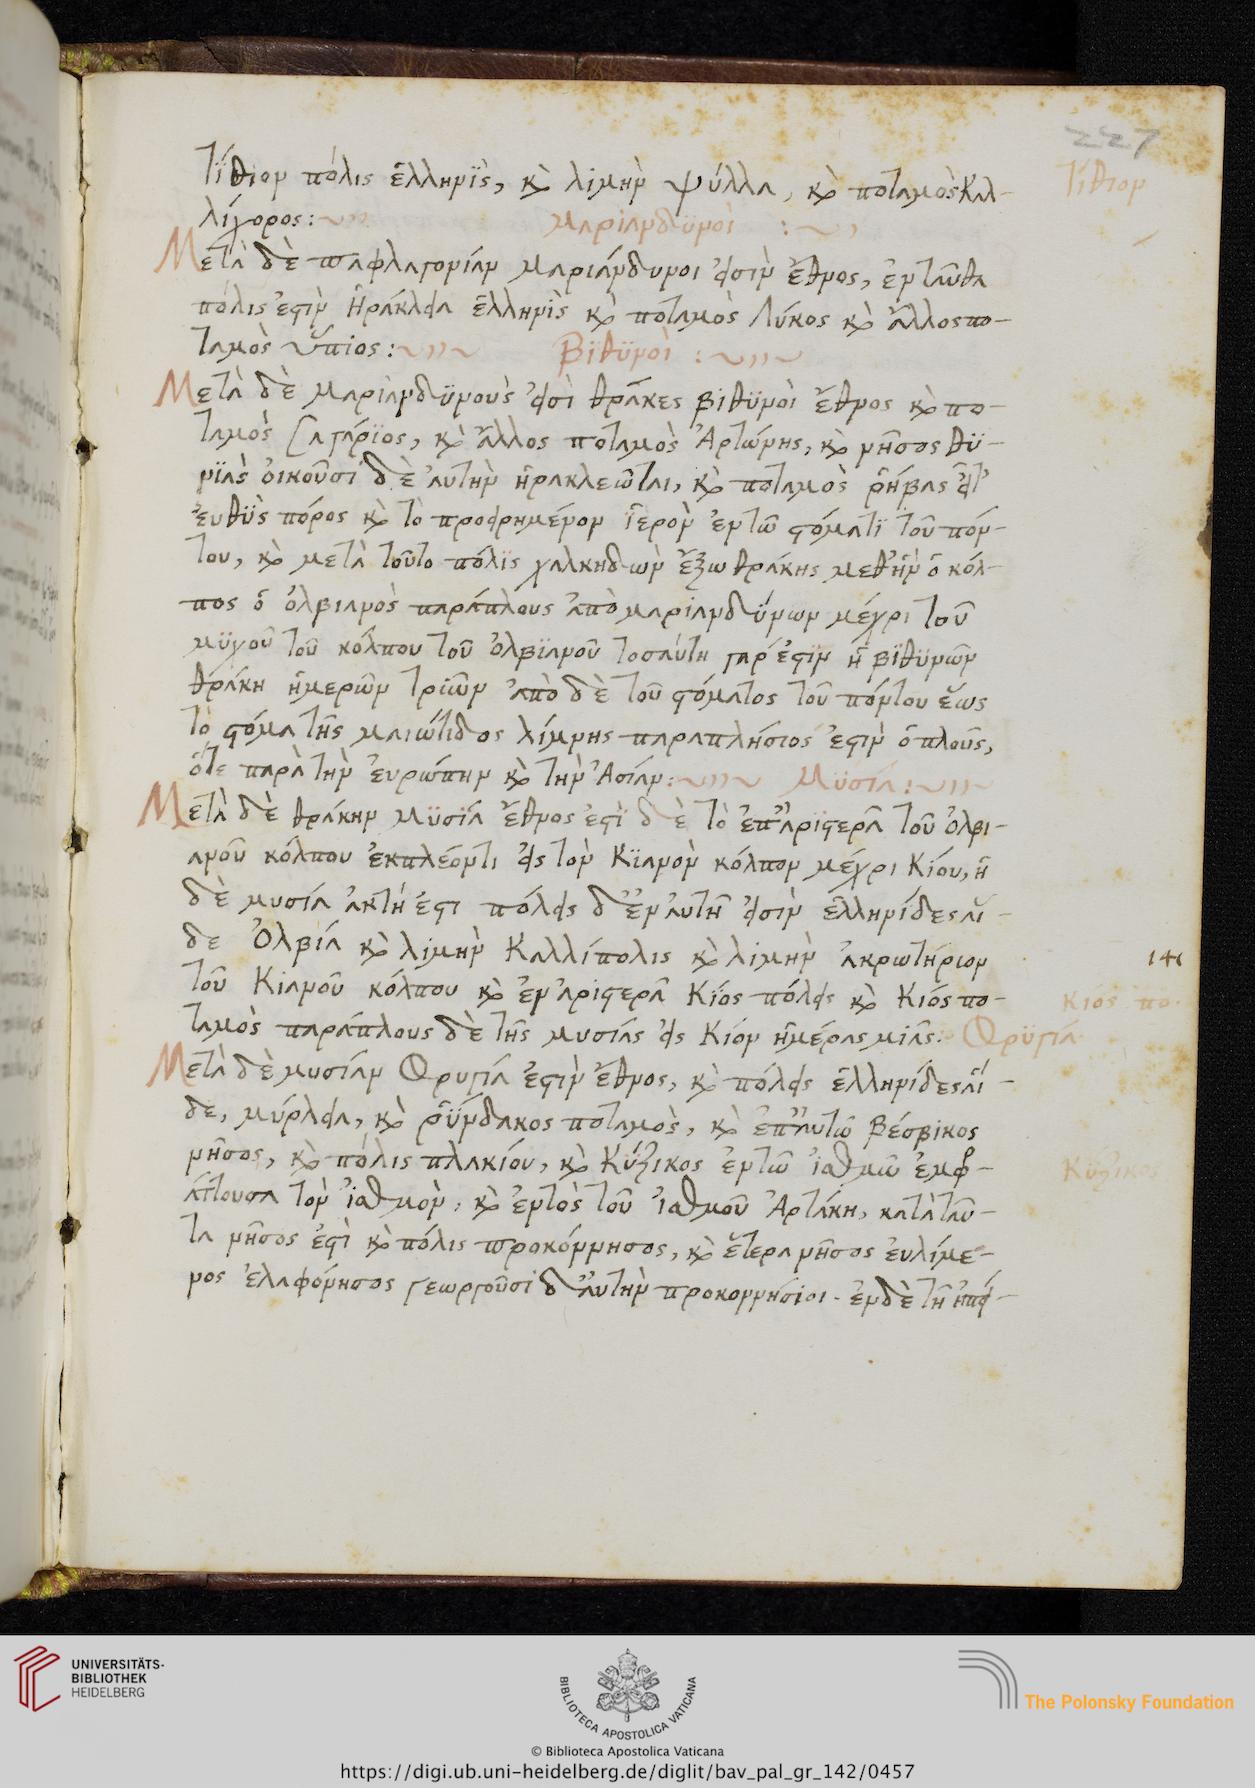 227
Τίθιον πόλις ἑλληνὶς, κὶ λιμὴν ψύλλα, κὶ ποταμὸς Καλ- Τίθιον
λίχορος: Μαριανδϋνοὶ :
Μετὰ δὲ παφλαγονίαν μαριάνδυνοι εἰσὶν ἔθνος, ἐνταῦθα
πόλις ἐστὶν Ἡράκλεια ἑλληνὶς κὶ ποταμὸς Λύκος κὶ ἄλλος πο-
ταμὸς ὕπιος: Βϊθϋνοὶ :
Μετὰ δὲ μαριανδϋνοὺς εἰσὶ θρᾶκες βϊθϋνοὶ ἔθνος κὶ πο-
ταμὸς Σαγάρϊος, κὶ ἄλλος ποταμὸς Ἀρτώνης, κὶ νῆσος θϋ-
νϊὰς οἰκοῦσι δὲ αὐτὴν ἡρακλεῶται, κὶ ποταμὸς ῥήβας εἶτ'
ἐυθϋς πόρος κὶ τὸ προειρημένον ἱερὸν ἐν τῶ στόματϊ τοῦ πόν-
του, κὶ μετὰ τοῦτο πόλϊς χαλκηδὼν ἔξω θράκης μεθ' ἣν ὁ κόλ-
πος ὁ ὀλβιανὸς παράπλους ἀπὸ μαριανδϋνων μέχρι τοῦ
μϋχοῦ τοῦ κόλπου τοῦ Ὀλβϊανοῦ τοσαύτη γάρ ἐστϊν ἡ βϊθϋνῶν
θράκη ἡμερῶν τριῶν ἀπὸ δὲ τοῦ στόματος τοῦ πόντου ἕως
τὸ στόμα τῆς μαιώτιδος λίμνης παραπλήσιος ἐστὶν ὁ πλοῦς,
ὅτε παρὰ τὴν ἐυρώπην κὶ τὴν Ἀσίαν: Μϋσία:
Μετὰ δὲ θράκην μϋσϊα ἔθνος ἐστὶ δὲ τὸ ἐπ' ἀρϊστερᾶ τοῦ Ὀλβι-
ανοῦ κόλπου ἐκπλέοντι εἰς τὸν Κϊανὸν κόλπον μέχρι Κίου, ἡ
δὲ μυσία ἀκτή ἐστι πόλεις δ' ἐν αὐτῆ εἰσὶν ἑλληνίδες αἵ-
δε Ὀλβία κὶ λιμὴν Καλλίπολις κὶ λιμὴν ἀκρωτήριον
τοῦ Κιανοῦ κόλπου κὶ ἐν ἀριστερᾶ Κίος πόλεις κὶ Κίος πο- Κίος πο.
ταμὸς παράπλους δὲ τῆς μυσίας εἰς Κίον ἡμέρας μιᾶς: Φρϋγία
Μετὰ δὲ μυσίαν Φρυγία ἐστὶν ἔθνος, κὶ πόλεις ἑλληνίδες αἵ-
δε, μύρλεια, κὶ ῥϋνδακος ποταμὸς, κὶ ἐπ' αὐτῶ Βέσβικος
νῆσος, κὶ πόλις πλακίου, κὶ Κύζικος ἐν τῶ ἰσθμῶ ἐμφρ- Κύζικος
άττουσα τὸν ἰσθμὸν, κὶ ἐντὸς τοῦ ἰσθμοῦ Ἀρτάκη, κατὰ ταῦ-
τα νῆσος ἐστὶ κὶ πόλις προκόννησος, κὶ ἕτερα νῆσος ἐυλίμε-
νος ἐλαφόνησος γεωργοῦσι δ' αὐτὴν προκοννήσιοι. ἐν δὲ τῆ ἠπεί-
UNIVERSITÄTS-
BIBLIOTHEK
HEIDELBERG
BIBLIOTECA APOSTOLICA VATICANA
The Polonsky Foundation
© Biblioteca Apostolica Vaticana
https://digi.ub.uni-heidelberg.de/diglit/bav_pal_gr_142/0457